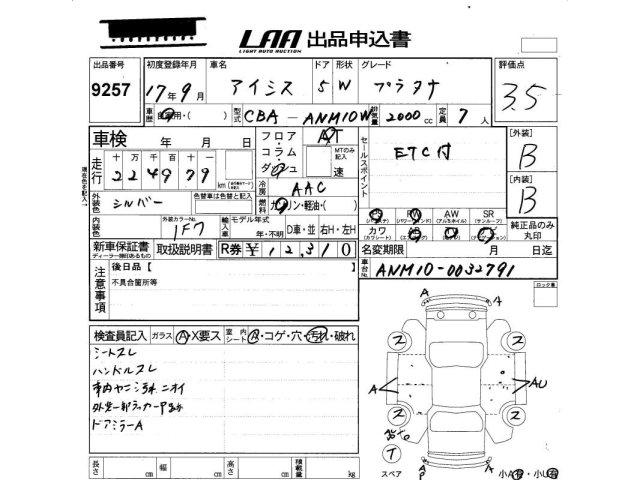 LAA 出品申込書
LIGHT AUTO AUCTION
出品番号 初度登録年月 車名 ドア 形状 グレード 評価点
9257 17年9月 アイシス 5 W プラタナ 3.5
車歴 自家用・( ) 型式 CBA - ANM10W 排気量 2000 cc 定員 7 人
車検 年 月 日 フロア・コラム・ダッシュ AT セールスポイント [外装]
MTのみ記入 速 ETC付 B
走行 十万 万 千 百 十 km
2 2 4 9 7 9
冷房 AAC [内装]
外装色 シルバー 色替車は色替と記入 燃料 ガソリン・軽油・( ) B
外装カラーNo. 1F7 輸入車 モデル年式 年・不明 D車・並 右H・左H
PS PW AW SR
(パワーウィンド) (アルミホイル) (サンルーフ)
カワ AB TV ナビ
(カワシート)
純正品のみ丸印
新車保証書 取扱説明書 R券 ¥12,310 名変期限 月 日迄
ディーラー捺印あるもの
車台No. ANM10-0032791
注意事項 後日品[ ] ロック番
不具合箇所等
検査員記入 ガラス A・X要ス 室内シート A・コゲ・穴・汚れ・破れ
シートスレ
ハンドルスレ
車内ヤニシミ ニオイ
外装一部ラッカーP
ドアミラーA
A A
2 2
A AU
2 2
T
スペア A P A 小A有・小U有
長さ cm 幅 cm 高さ cm 積載量 kg